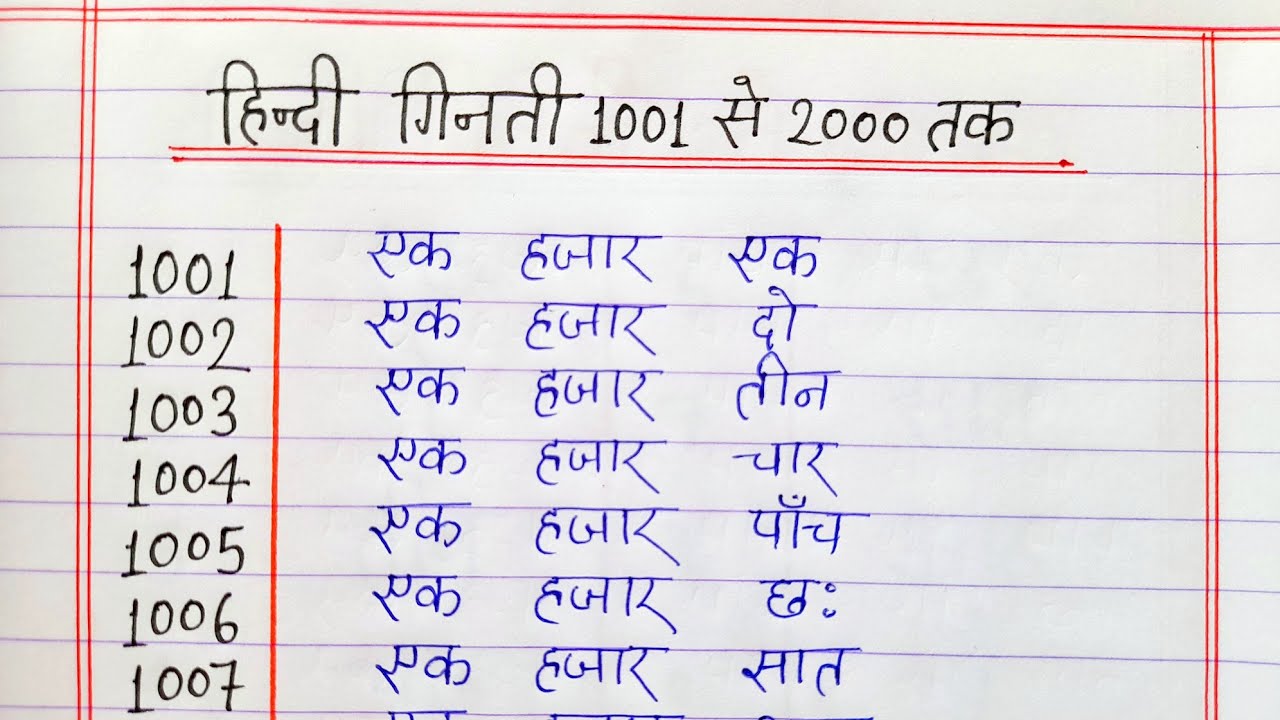 हिन्दी गिनती 1001 से 2000 तक
1001 एक हजार एक
1002 एक हजार दो
1003 एक हजार तीन
1004 एक हजार चार
1005 एक हजार पाँच
1006 एक हजार छः
1007 एक हजार सात